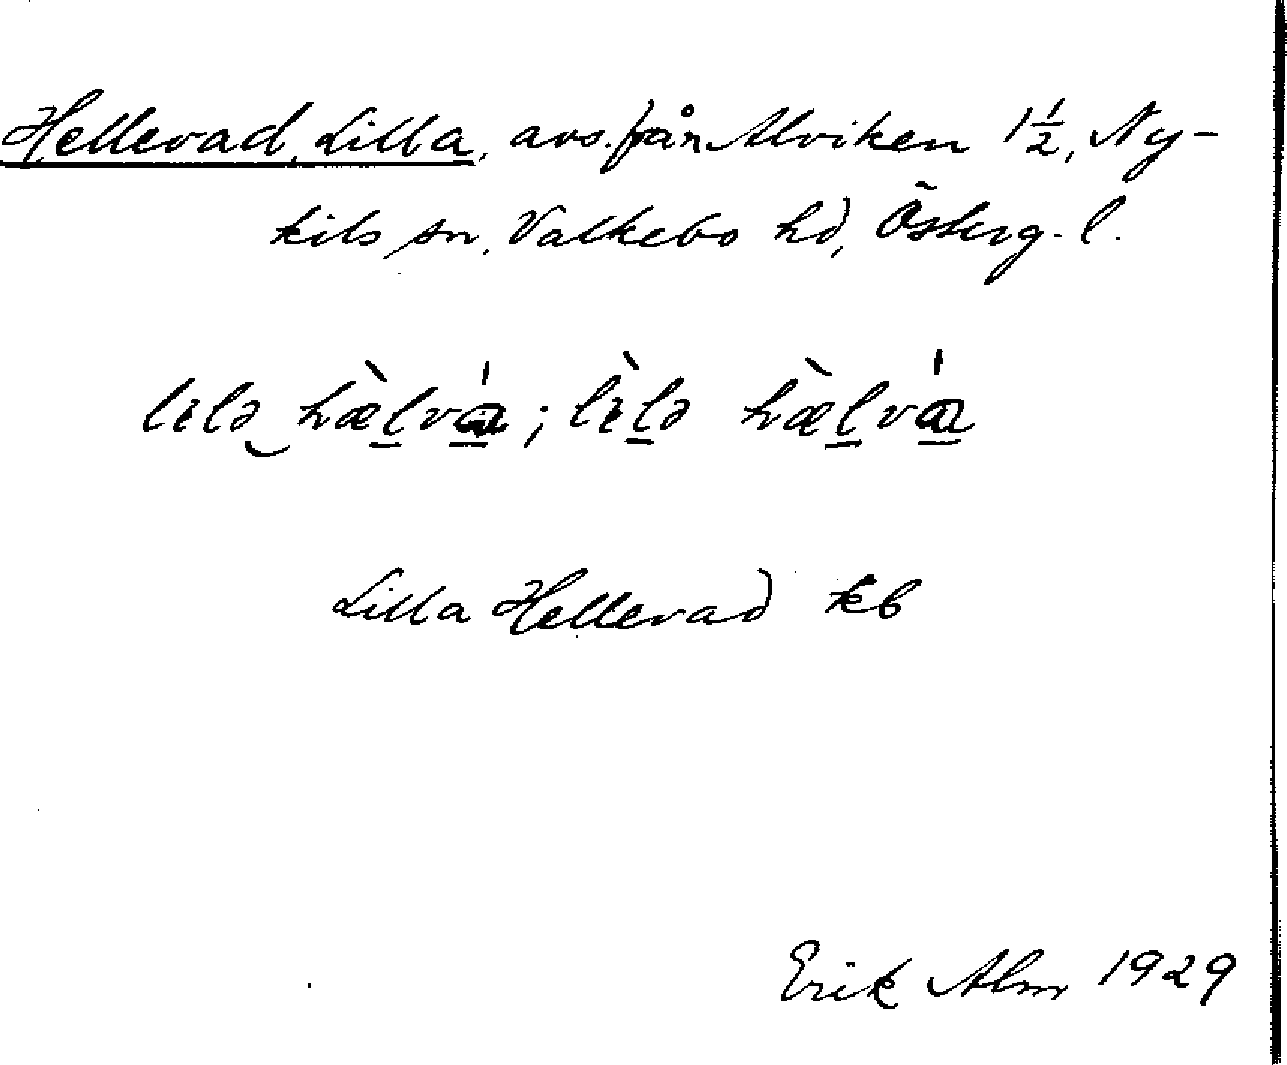 Hellevad, Lilla, avs. från Alviken 1½, Ny-
kils sn, Valkebo hd, Österg. l.
lɩlə hæ̀lvá; lɩ̀lə hæ̀lvá
Lilla Hellevad kb
Erik Alm 1929